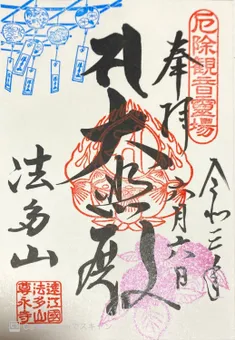 厄除観音霊場
奉拝
令和三年
六月六日
大悲殿
法多山
遠江國
法多山
尊永寺